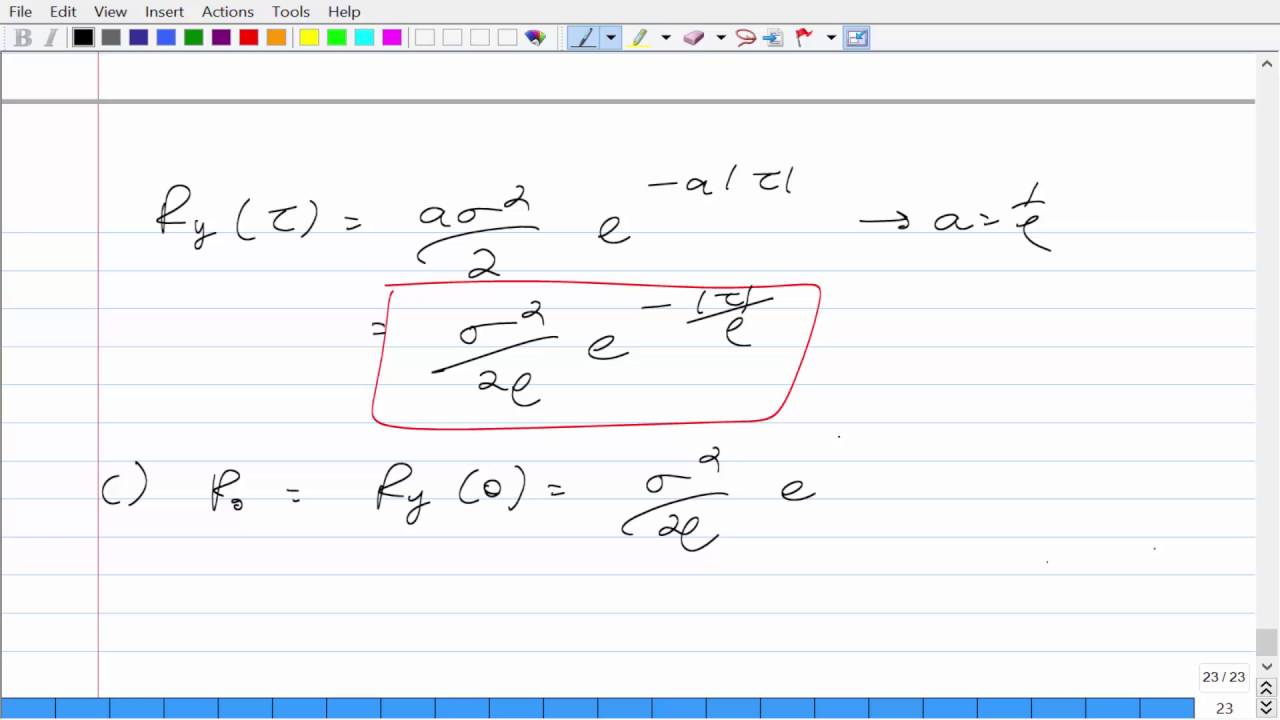 File Edit View Insert Actions Tools Help
B I
R_y(τ) = aσ²/2 e^{-a|τ|} → a = 1/ℓ
= σ²/2ℓ e^{-|τ|/ℓ}
c) P₀ = R_y(0) = σ²/2ℓ e
23 / 23
23